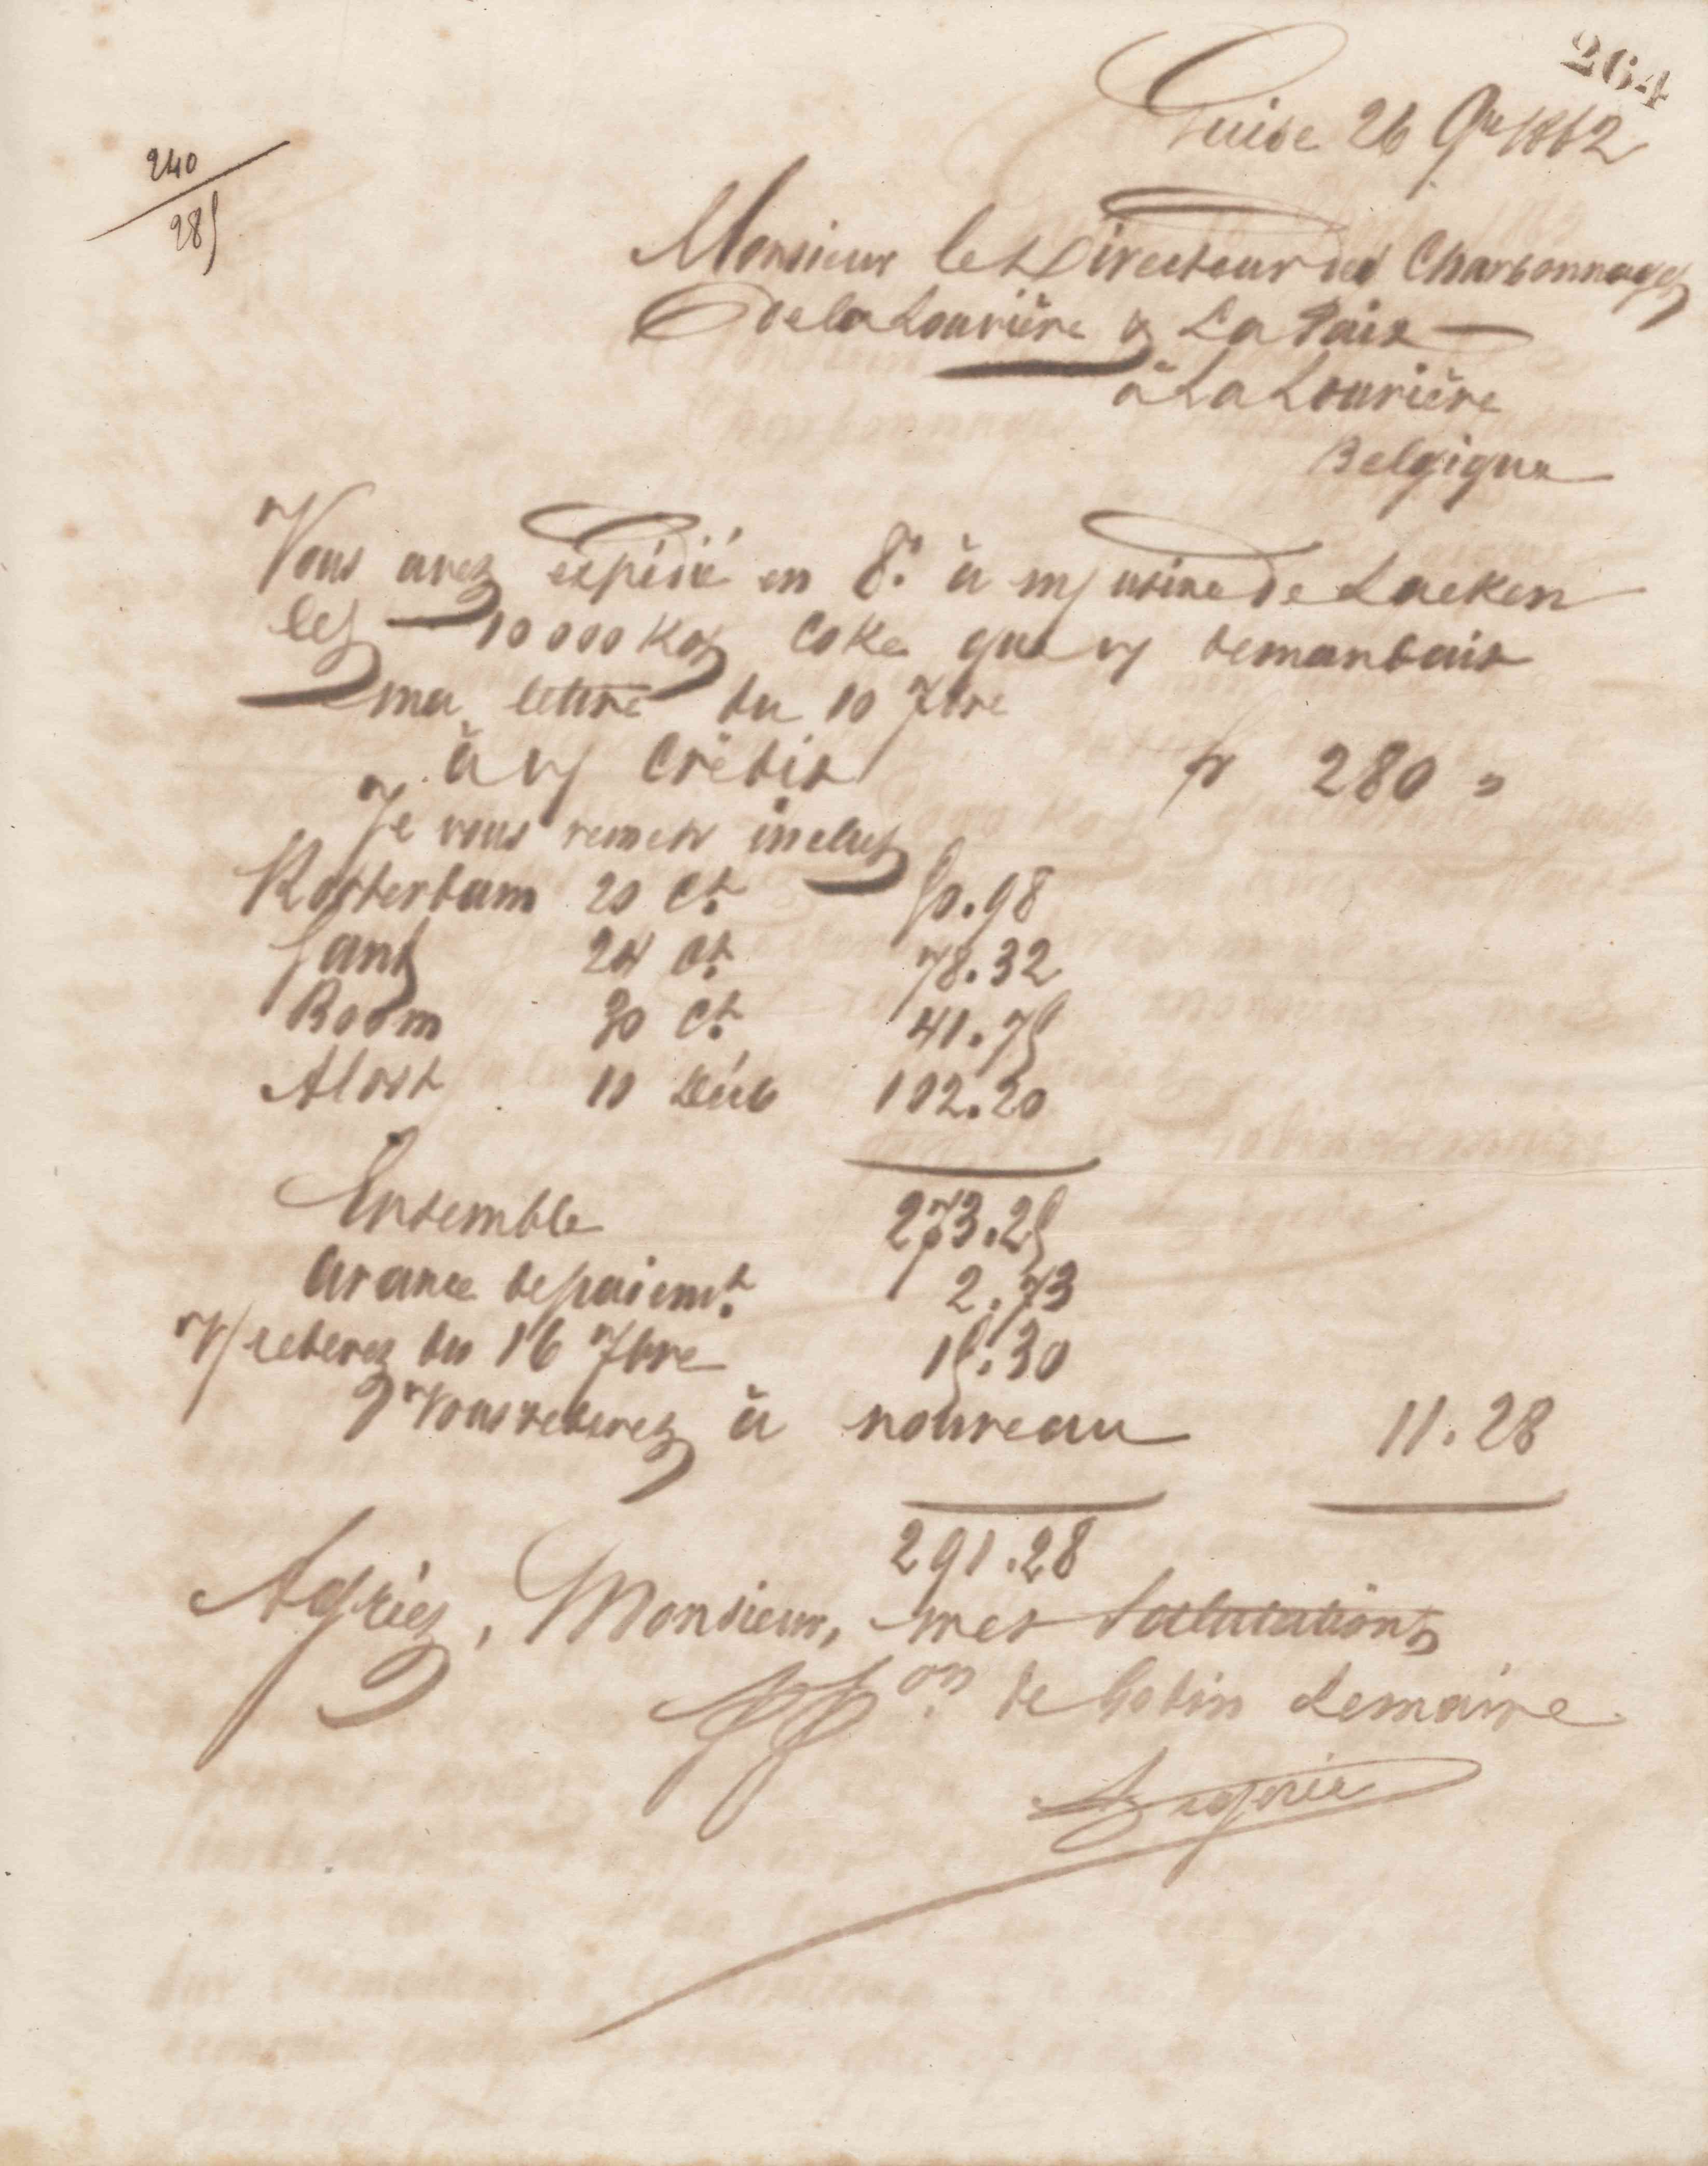 264
Guise 26 9re 1862
240
285
Monsieur le Directeur des Charbonnages
de la Louvière & La Paix
à La Louvière
Belgique
Vous avez expédié en 8e à m/ usine de Laeken
les 10000 Kos Coke que v/ demandait
ma lettre du 10 7bre
à v/ Crédit fr 280 "
Je vous remets inclus
Rotterdam 20 Ct 50.98
Gand 24 Ct 78.32
Boom 30 Ct 41.75
Alost 10 Déc 102.20
Ensemble 273.25
avance de paiemt 2.73
V/ redevez du 16 7bre 15.30
Vous redevez à nouveau 11.28
291.28
Agréez, Monsieur, mes salutations
on de Godin Lemaire